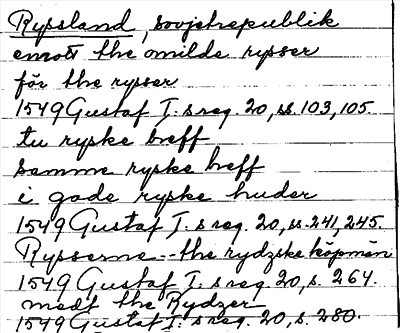 Ryssland, sovjetrepublik
emott the omilde rysser
för the rysser
1549 Gustaf I.s reg. 20, ss. 103, 105.
tu ryske breff
samme ryske breff
i gode ryske huder
1549 Gustaf I.s reg. 20, ss. 241, 245.
Rysserne -- the rydzske köpmän
1549 Gustaf I.s reg. 20, s. 264.
medt the Rydzer
1549 Gustaf I.s reg. 20, s. 280.